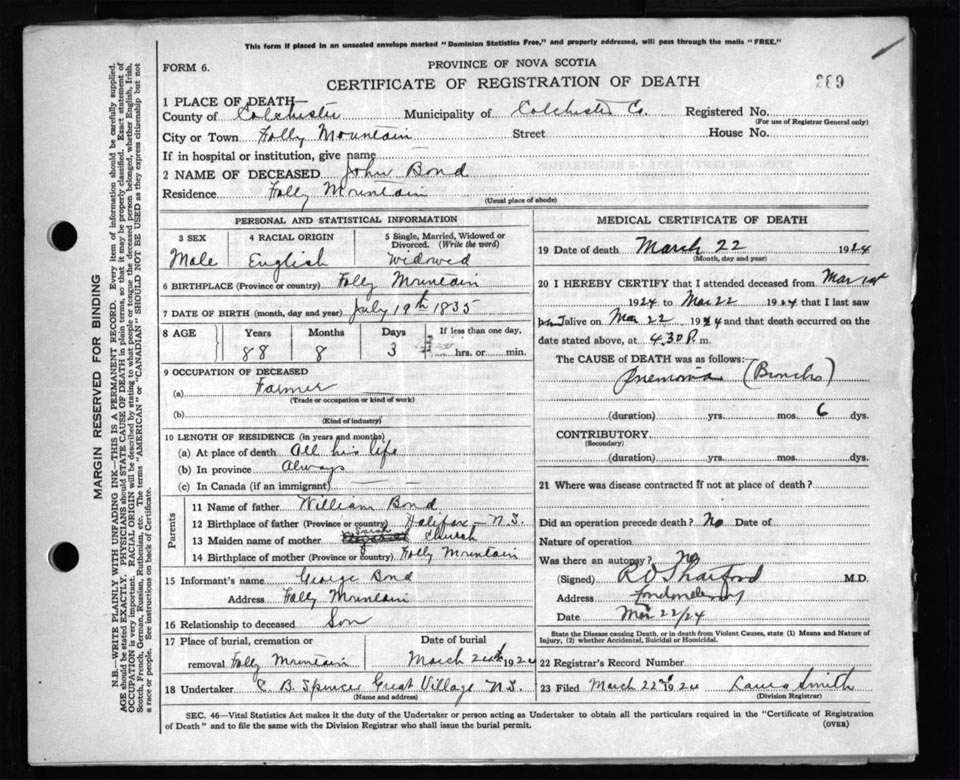 This form if placed in an unsealed envelope marked "Dominion Statistics Free," and properly addressed, will pass through the mails "FREE."
FORM 6.
PROVINCE OF NOVA SCOTIA
CERTIFICATE OF REGISTRATION OF DEATH
289
1 PLACE OF DEATH—
County of Colchester Municipality of Colchester Co. Registered No.
(For use of Registrar General only)
City or Town Folly Mountain Street House No.
If in hospital or institution, give name
2 NAME OF DECEASED John Bond
Residence Folly Mountain
(Usual place of abode)
PERSONAL AND STATISTICAL INFORMATION
3 SEX
Male
4 RACIAL ORIGIN
English
5 Single, Married, Widowed or Divorced. (Write the word)
Widowed
6 BIRTHPLACE (Province or country) Folly Mountain
7 DATE OF BIRTH (month, day and year) July 19th 1835
8 AGE Years Months Days If less than one day,
88 8 3 hrs. or min.
9 OCCUPATION OF DECEASED
(a) Farmer
(Trade or occupation or kind of work)
(b)
(Kind of industry)
10 LENGTH OF RESIDENCE (in years and months)
(a) At place of death All his life
(b) In province Always
(c) In Canada (if an immigrant)
Parents
11 Name of father William Bond
12 Birthplace of father (Province or country) Halifax - N.S.
13 Maiden name of mother Church
14 Birthplace of mother (Province or country) Folly Mountain
15 Informant's name George Bond
Address Folly Mountain
16 Relationship to deceased Son
17 Place of burial, cremation or Date of burial
removal Folly Mountain March 24th 1924
18 Undertaker C. B. Spencer Great Village N.S.
(Name and address)
MEDICAL CERTIFICATE OF DEATH
19 Date of death March 22 1924
(Month, day and year)
20 I HEREBY CERTIFY that I attended deceased from Mar 1st
1924 to Mar 22 1924 that I last saw
alive on Mar 22 1924 and that death occurred on the
date stated above, at 4.30 P. m.
The CAUSE of DEATH was as follows:
Pnemonia (Broncho)
(duration) yrs. mos. 6 dys.
CONTRIBUTORY
(Secondary)
(duration) yrs. mos. dys.
21 Where was disease contracted if not at place of death?
Did an operation precede death? No Date of
Nature of operation
Was there an autopsy? No
(Signed) M.D.
Address Londonderry
Date Mar 22/24
State the Disease causing Death, or in death from Violent Causes, state (1) Means and Nature of
Injury, (2) whether Accidental, Suicidal or Homicidal.
22 Registrar's Record Number
23 Filed March 22nd 1924 Laura Smith
(Division Registrar)
SEC. 46—Vital Statistics Act makes it the duty of the Undertaker or person acting as Undertaker to obtain all the particulars required in the "Certificate of Registration
of Death" and to file the same with the Division Registrar who shall issue the burial permit.
(OVER)
MARGIN RESERVED FOR BINDING
N.B.—WRITE PLAINLY WITH UNFADING INK—THIS IS A PERMANENT RECORD. Every item of information should be carefully supplied.
AGE should be stated EXACTLY. PHYSICIANS should STATE CAUSE OF DEATH in plain terms, so that it may be properly classified. Exact statement of
OCCUPATION is very important. RACIAL ORIGIN will be described by stating to what people or tongue the deceased person belonged, whether English, Irish,
Scotch, French, German, Russian, Ruthenian, etc. The terms "AMERICAN" or "CANADIAN" SHOULD NOT BE USED as they express citizenship but not
a race or people. See instructions on back of Certificate.